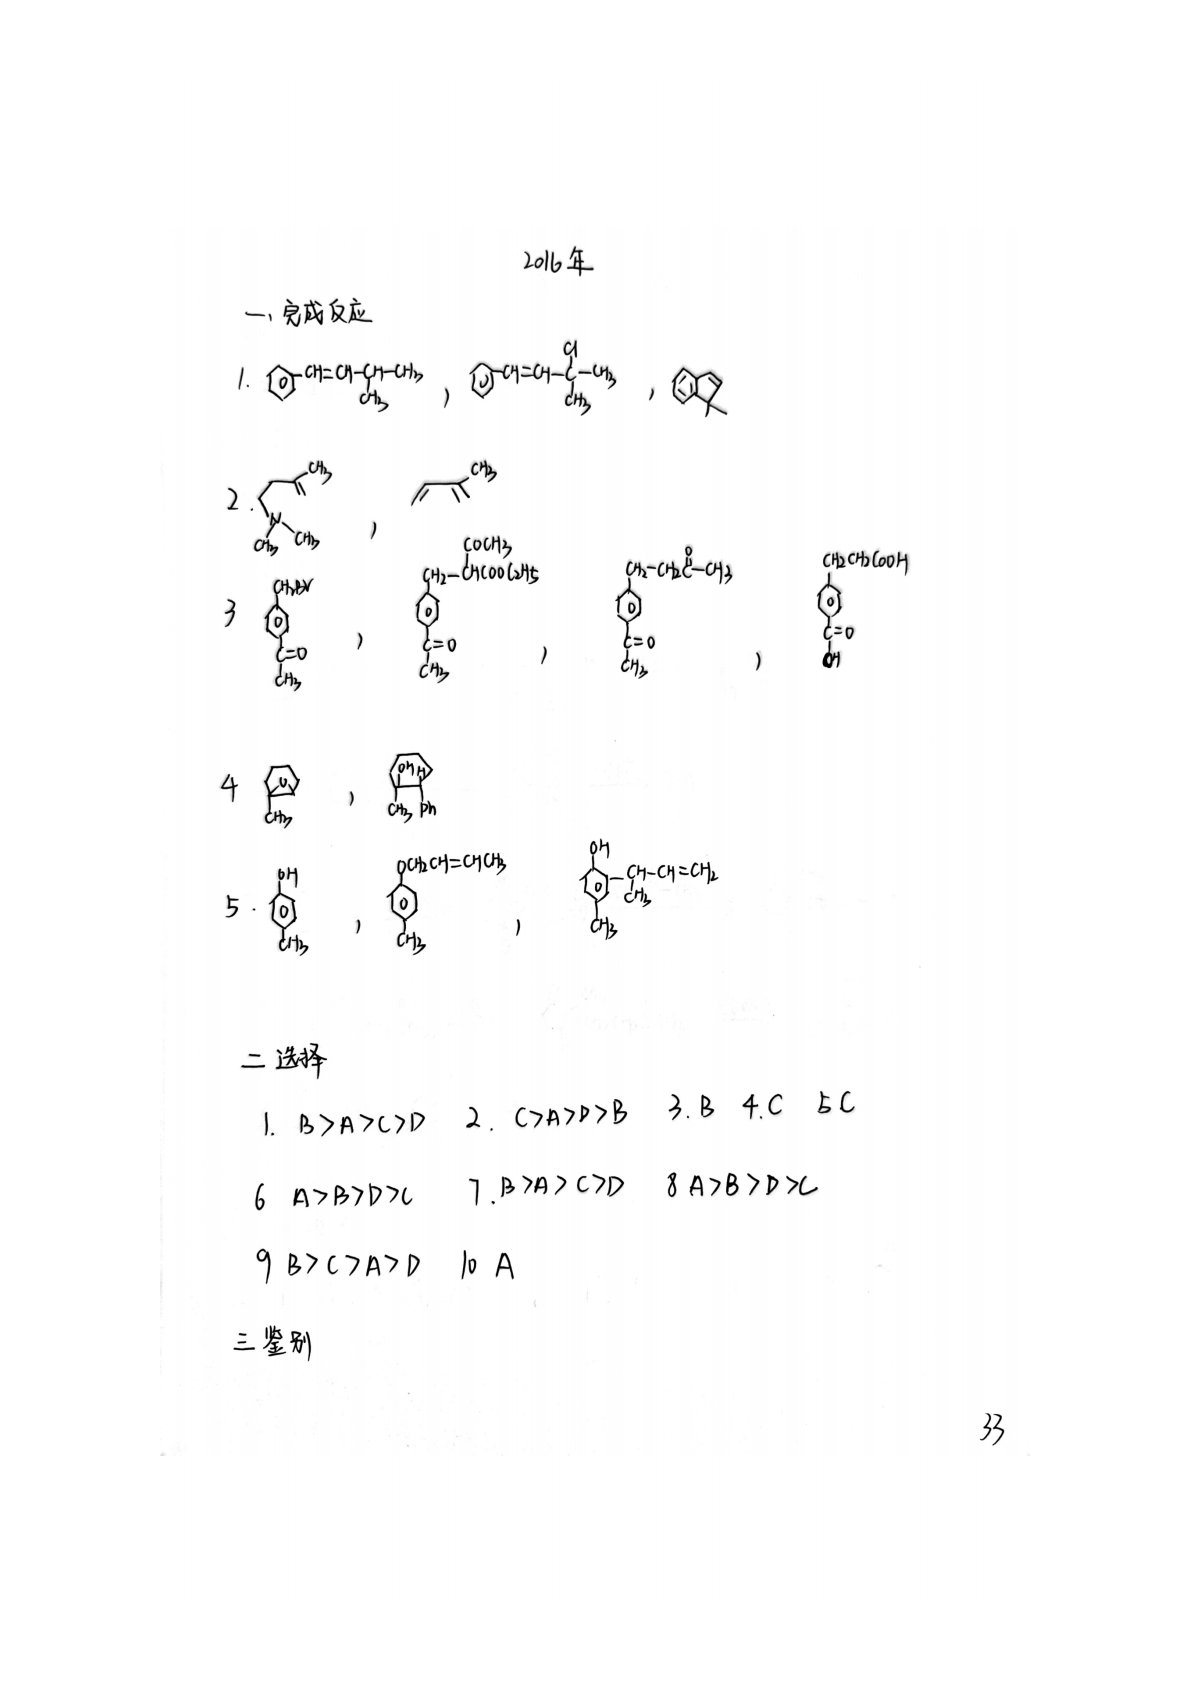 2016年
一、完成反应
1. CH=CH-CH-CH3 CH3 , CH=CH-C-CH3 Cl CH3 ,
2. CH3 N CH3 CH3 , CH3
3 CH2Br C=O CH3 , COCH3 CH2-CHCOOC2H5 C=O CH3 , CH2-CH2C-CH3 O C=O CH3 , CH2CH2COOH C=O OH
4 O CH3 , OH H CH3 Ph
5. OH CH3 , OCH2CH=CHCH3 CH3 , OH CH-CH=CH2 CH3 CH3
二 选择
1. B>A>C>D 2. C>A>D>B 3. B 4. C 5 C
6 A>B>D>C 7. B>A>C>D 8 A>B>D>C
9 B>C>A>D 10 A
三 鉴别
33